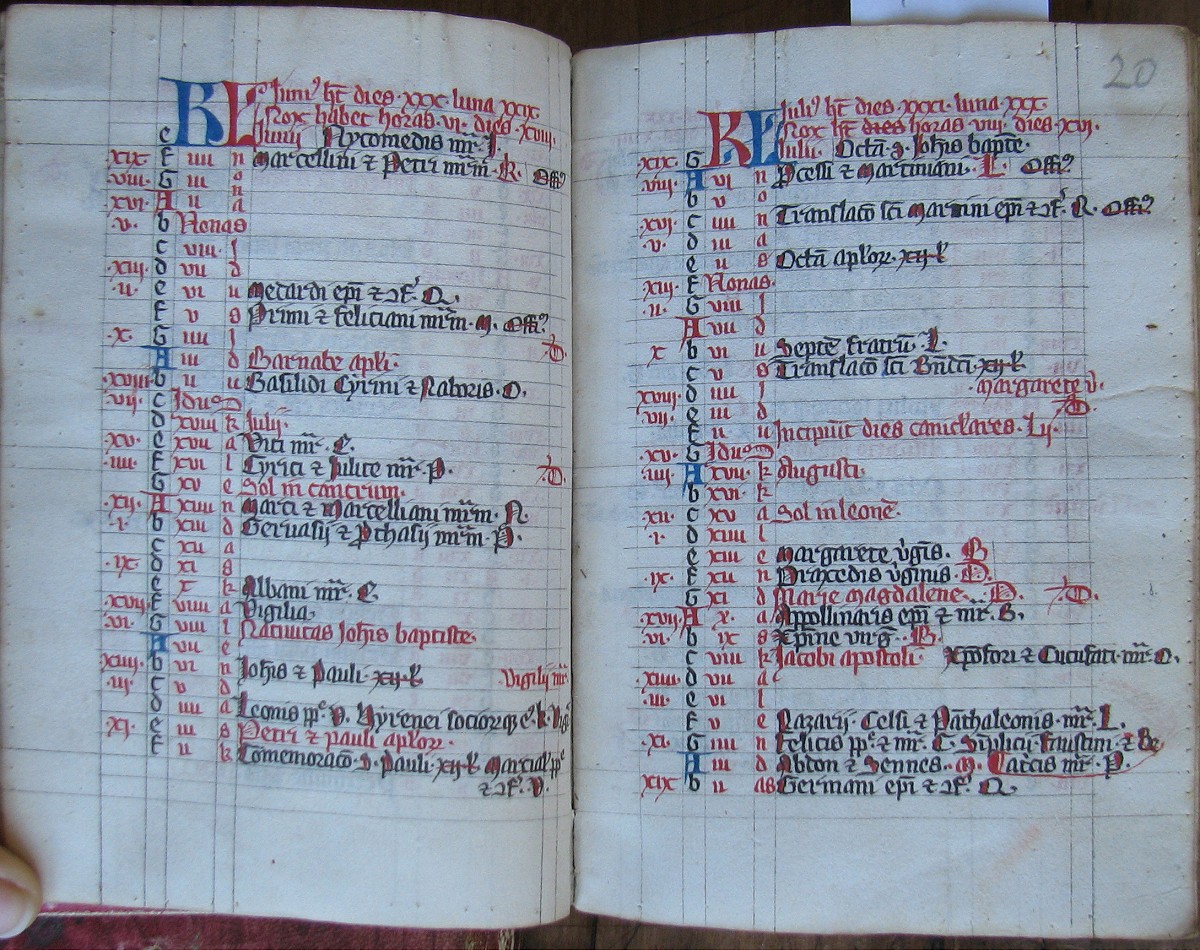 KL Juni⁹ ht̄ dies·xxx·luna xxix
Nox habet horas·vi·dies·xviii·
e Junij Nycomedis mr̄·L·
xix· f iiii n Marcellini ⁊ Petri mr̄m·R· Off⁹
viii· G iii o
xvi· A ii n a
·v· b Nonas
c viii· J
xiii· d vii d
·ii· e vi u Medardi ep̄i ⁊ ɔf̄·Q·
f v s Primi ⁊ feliciani mr̄m·M· Off⁹
·x· G iiii J
A iii d Barnabe apl̄i·
xviii· b ii u Basilidi Cyrini ⁊ Naboris·O·
vii· c Idus
d xviii k Julij·
xv· e xvii a Viti mr̄·C·
·iiii· f xvi l Cyrici ⁊ Julite mr̄·P·
G xv e Sol in cancrum·
xii· A xiiii n Marci ⁊ Marcelliani mr̄m·N·
·i· b xiii d Gervasij ⁊ Pthasij mr̄m·P·
c xii a
·ix· d xi s
e x k Albani mr̄·C·
xvii· f viiii a Vigilia·
vi· G viii l Nativitas Joh̄is baptiste·
A vii e
xiiii· b vi n Joh̄is ⁊ Pauli·xii·l Vigilij mr̄
·iii· c v d
d iiii a Leonis pp̄e
·xi· e iii s Petri ⁊ pauli aplor·
f ii k Comemoraco·S·Pauli·xii·l Marcial
⁊ ɔf̄·V·
20
KL Juli⁹ ht̄ dies·xxxi·luna·xxx·
Nox ht̄ dies horas·viii·dies·xvi·
xix· G Julij· Octā·S·Joh̄is bapte·
viii· A vi n Pcessi ⁊ Martiniani·L· Off⁹
b v o
·xvi· c iiii n Translaco sci Martini ep̄i ⁊ ɔf̄·R· Off⁹
·v· d iii a
e ii s Octā aplor·xii·l
xiii· f Nonas·
·ii· G viii J
A vii d
x b vi u Septē fratrū·L·
c v s Translaco sci Bn̄dcti·xii·l
xviii· d iiii J Margarete v̄·
vii· e iii d
f ii u Incipiūt dies caniclares·
xv· G Idus
·iiii· A xvii· k Augusti·
b xvi· k
xii· c xv a Sol in leonē·
·i· d xiiii l
e xiii e Margarete v̄gīs·B
·ix· f xii n Praxedis v̄ginis·
G xi d Marie Magdalene·D·
xvii· A ·x· a Appollinaris ep̄i ⁊ mr̄·B·
vi· b ix s Xpine virg̅·B·
c viii k Jacobi apostoli· Xp̄ofori ⁊ Cucufati·mr̄·O·
xiiii· d vii a
·iii· e vi l
f v e Nazarij·Celsi ⁊ Pāthaleonis·mr̄·L·
·xi· G iiii n Felicis pp̄e ⁊ mr̄·C·Sīplicij·faustini·⁊ Be
A iii d Abdon ⁊ Sennes·M· mr̄·P·
xix b ii as Germani ep̄i ⁊ ɔf̄·Q·